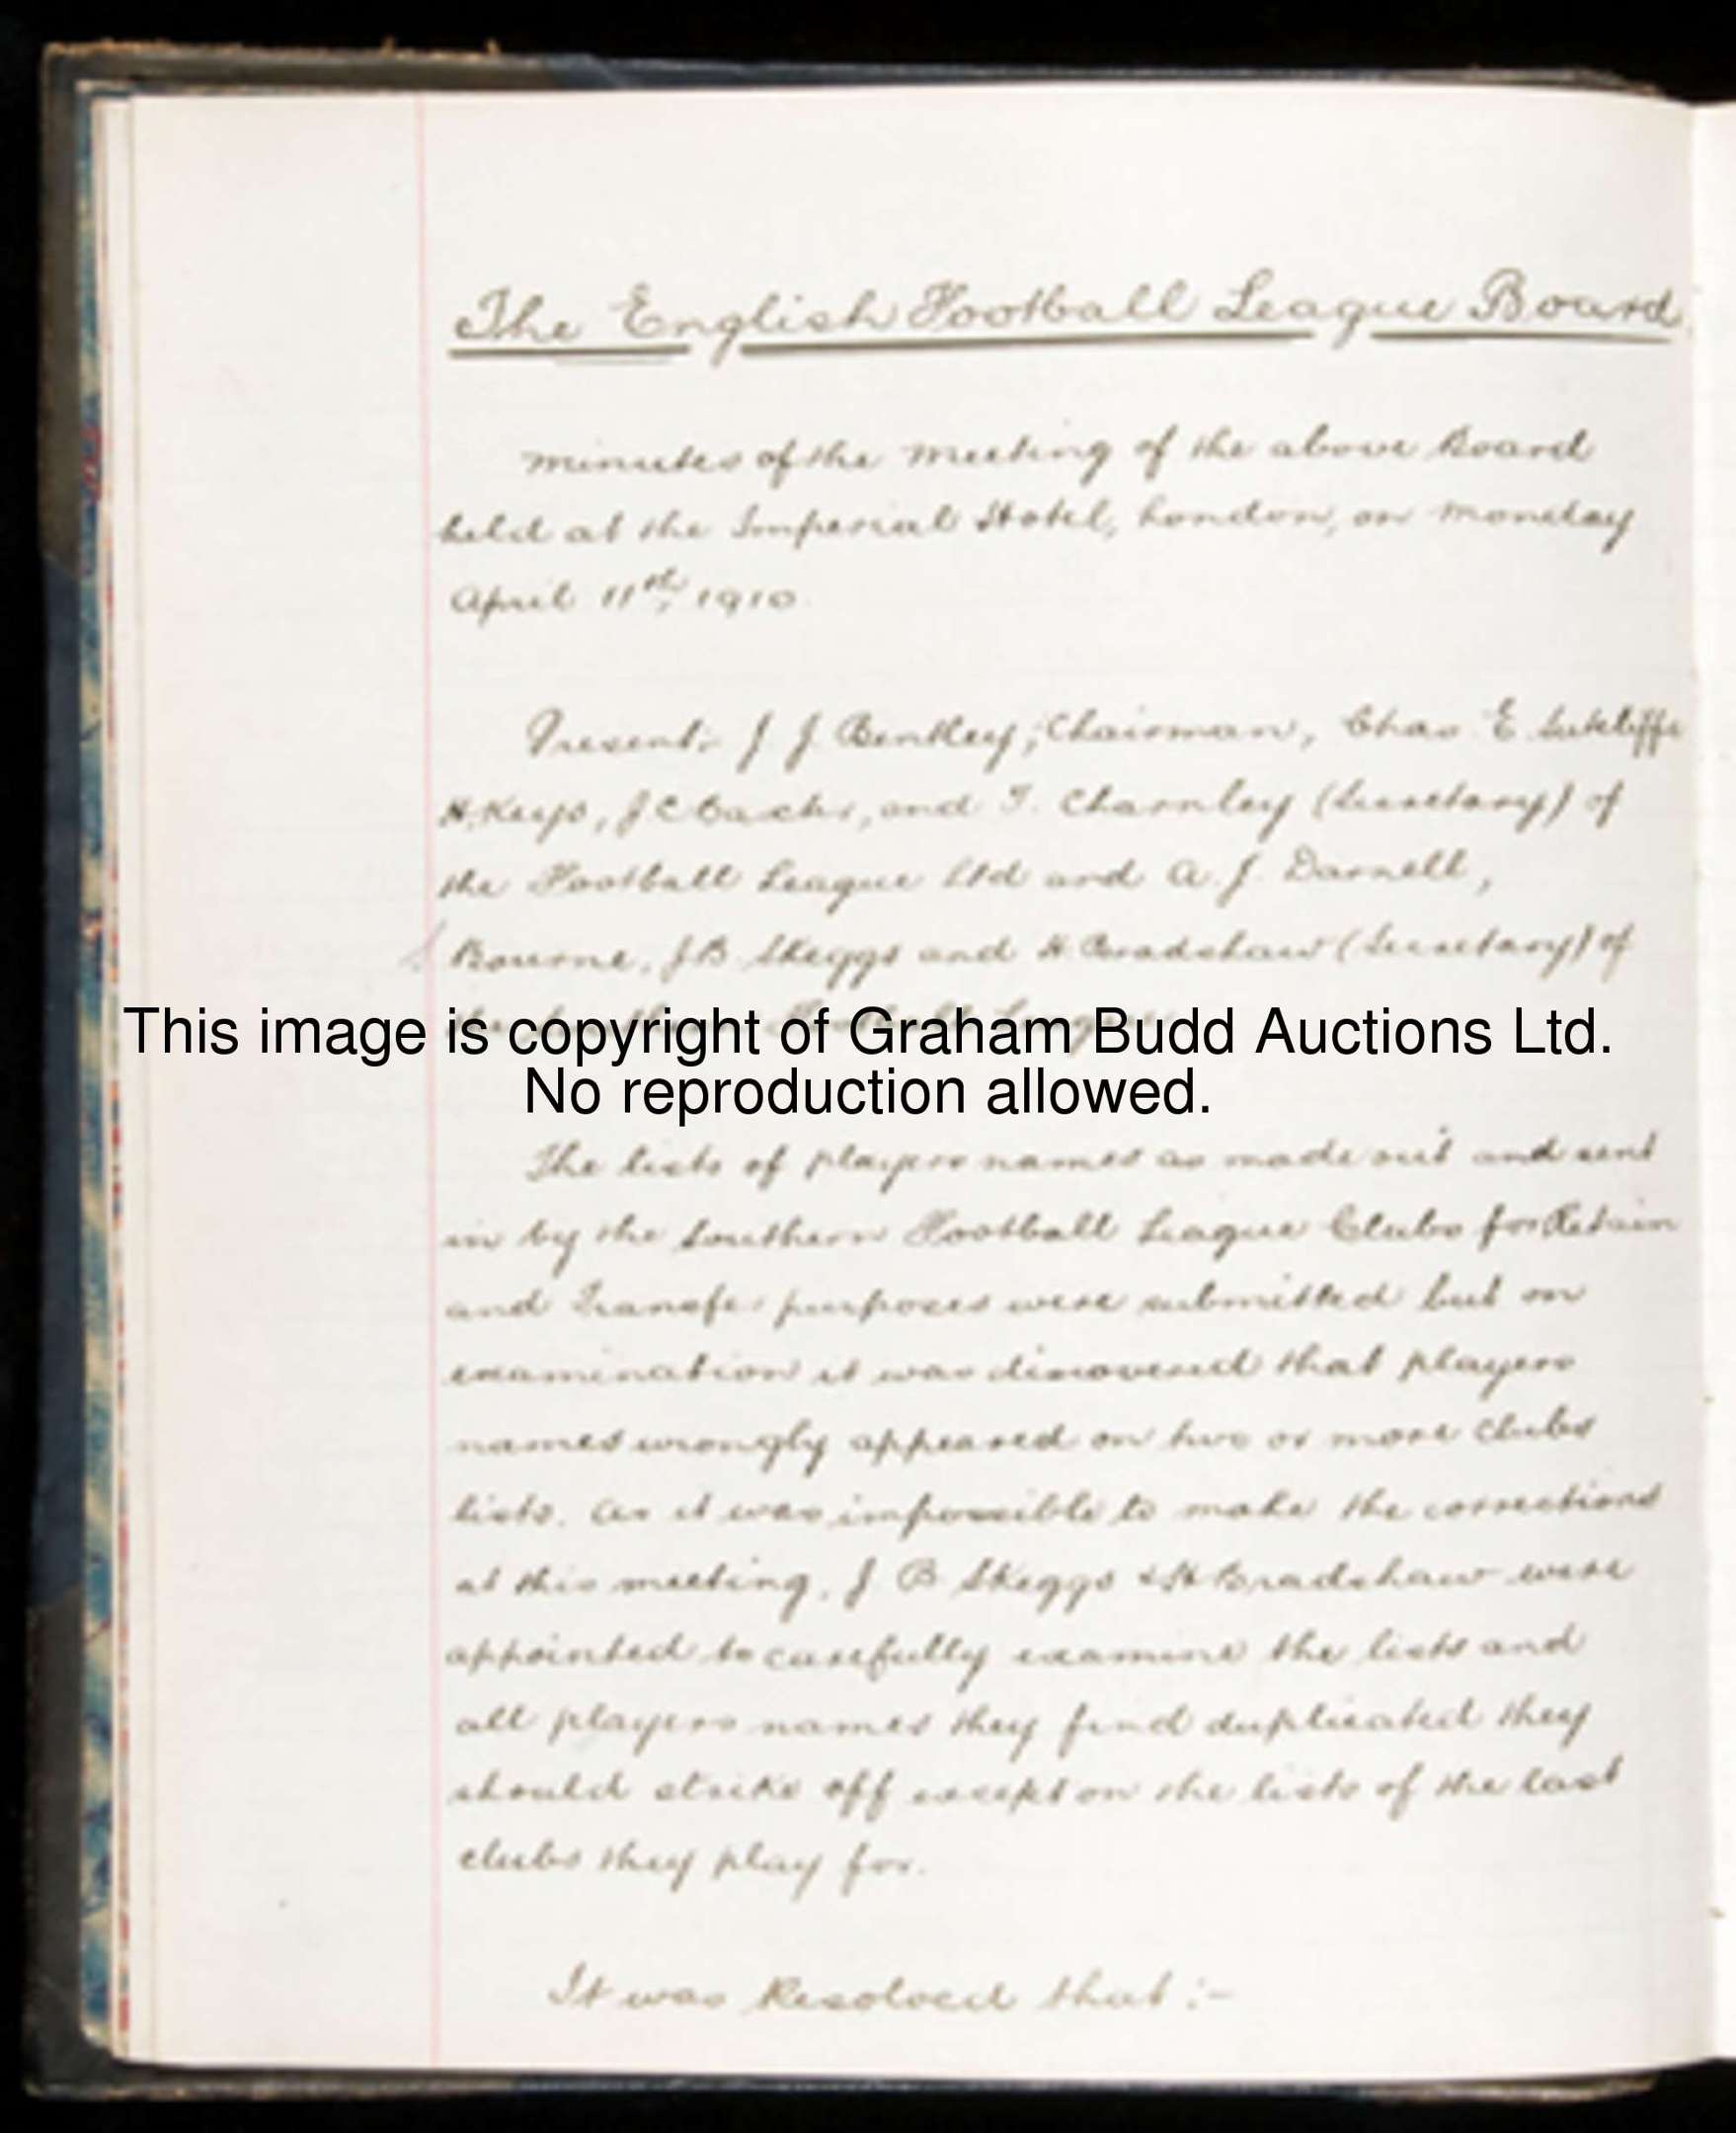 The English Football League Board.
Minutes of the Meeting of the above Board
held at the Imperial Hotel, London, on Monday
April 11th, 1910.
Present:- J. J. Bentley, Chairman, Chas. E. Sutcliffe
H. Keys, J C and T. Charnley (Secretary) of
the Football League Ltd and A. J. Darnell,
Bourne, J B Skeggs and H. Bradshaw (Secretary) of
This image is copyright of Graham Budd Auctions Ltd.
No reproduction allowed.
The lists of players names as made out and sent
in by the Southern Football League Clubs for Retain
and Transfer purposes were submitted but on
examination it was discovered that players
names wrongly appeared on two or more clubs
lists. As it was impossible to make the corrections
at this meeting, J B Skeggs & H Bradshaw were
appointed to carefully examine the lists and
all players names they find duplicated they
should strike off except on the lists of the last
clubs they play for.
It was Resolved that :-